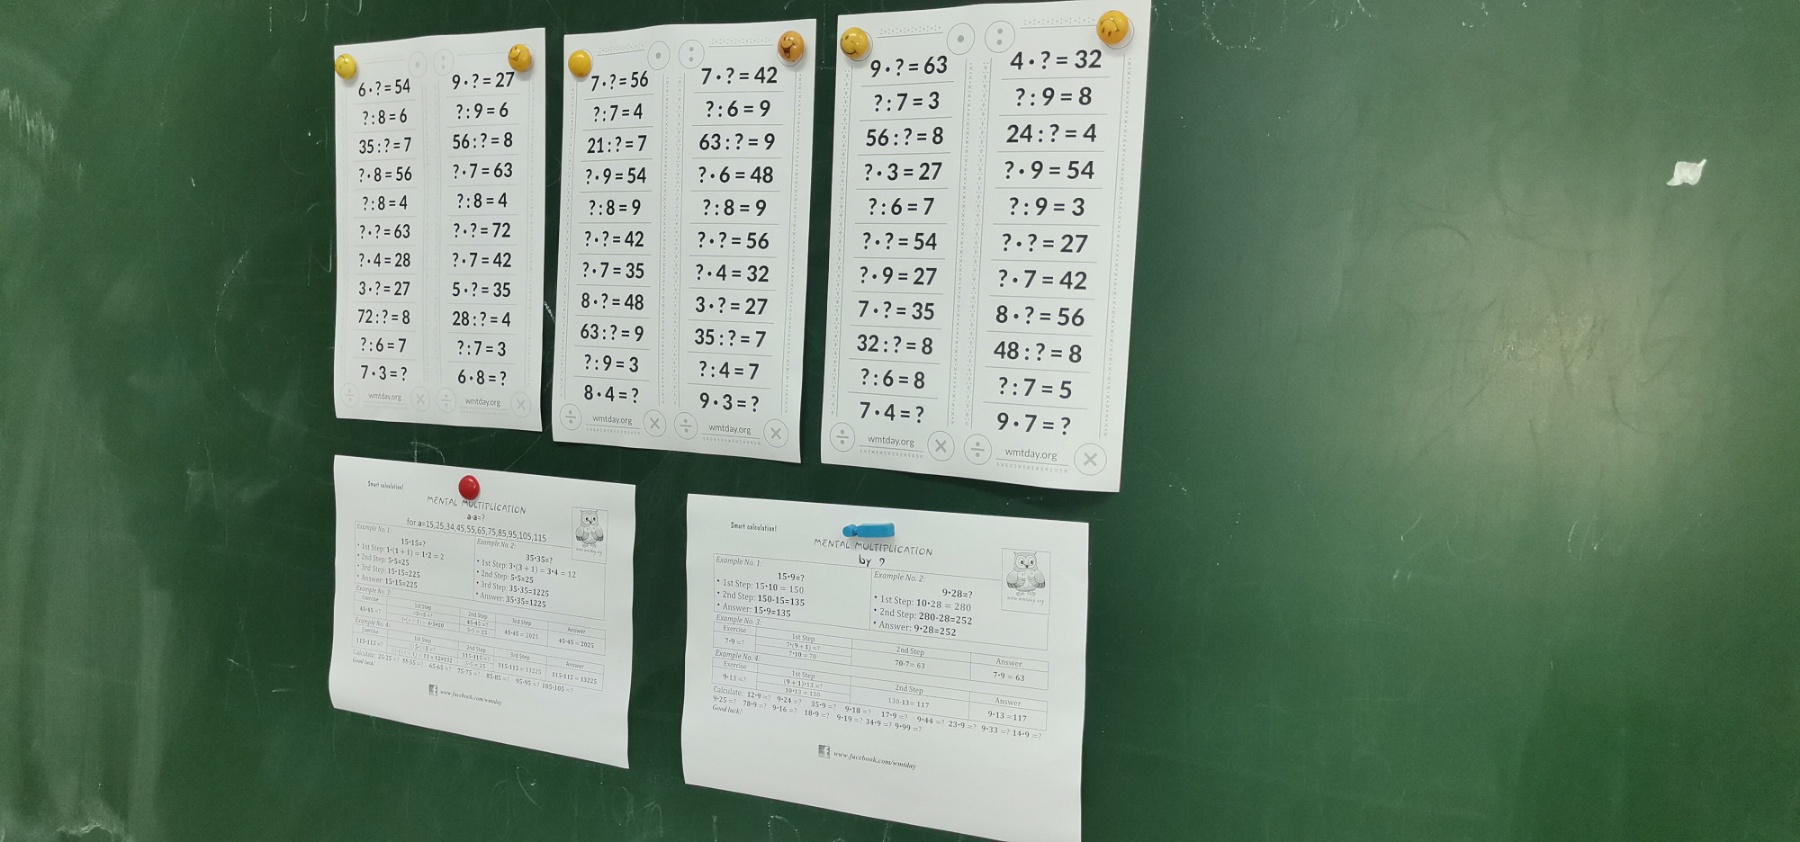 6·?=54
?:8=6
35:?=7
?·8=56
?:8=4
?·?=63
?·4=28
3·?=27
72:?=8
?:6=7
7·3=?
wmtday.org
9·?=27
?:9=6
56:?=8
?·7=63
?:8=4
?·?=72
?·7=42
5·?=35
28:?=4
?:7=3
6·8=?
wmtday.org
7·?=56
?:7=4
21:?=7
?·9=54
?:8=9
?·?=42
?·7=35
8·?=48
63:?=9
?:9=3
8·4=?
wmtday.org
7·?=42
?:6=9
63:?=9
?·6=48
?:8=9
?·?=56
?·4=32
3·?=27
35:?=7
?:4=7
9·3=?
wmtday.org
9·?=63
?:7=3
56:?=8
?·3=27
?:6=7
?·?=54
?·9=27
7·?=35
32:?=8
?:6=8
7·4=?
wmtday.org
4·?=32
?:9=8
24:?=4
?·9=54
?:9=3
?·?=27
?·7=42
8·?=56
48:?=8
?:7=5
9·7=?
wmtday.org
Smart calculation!
MENTAL MULTIPLICATION
a·a=?
for a=15,25,34,45,55,65,75,85,95,105,115
Example No. 1:
15·15=?
• 1st Step: 1·(1+1) = 1·2 = 2
• 2nd Step: 5·5=25
• 3rd Step: 15·15=225
• Answer: 15·15=225
Example No. 2:
35·35=?
• 1st Step: 3·(3+1) = 3·4 = 12
• 2nd Step: 5·5=25
• 3rd Step: 35·35=1225
• Answer: 35·35=1225
Example No. 3:
Exercise 1st Step 2nd Step 3rd Step Answer
45·45 =? 45·45 = 2025 45·45 = 2025
Example No. 4:
Exercise 1st Step 2nd Step 3rd Step Answer
115·115 =? 115·115 = 13225 115·115 = 13225
Calculate: 25·25 =? 55·55 =? 65·65 =? 75·75 =? 85·85 =? 95·95 =? 105·105 =?
Good luck!
www.facebook.com/wmtday
Smart calculation!
MENTAL MULTIPLICATION
by 9
Example No. 1:
15·9=?
• 1st Step: 15·10 = 150
• 2nd Step: 150-15=135
• Answer: 15·9=135
Example No. 2:
9·28=?
• 1st Step: 10·28 = 280
• 2nd Step: 280-28=252
• Answer: 9·28=252
Example No. 3:
Exercise 1st Step 2nd Step Answer
7·9 =? 7·(9+1) =? 7·10 = 70 70-7= 63 7·9 = 63
Example No. 4:
Exercise 1st Step 2nd Step Answer
9·13 =? (9+1)·13 =? 10·13 = 130 130-13= 117 9·13 =117
Calculate: 12·9 =? 9·24 =? 35·9 =? 9·18 =? 17·9 =? 9·44 =? 23·9 =? 9·33 =? 14·9 =?
9·25 =? 78·9 =? 9·16 =? 18·9 =? 9·19 =? 34·9 =? 9·99 =?
Good luck!
www.facebook.com/wmtday